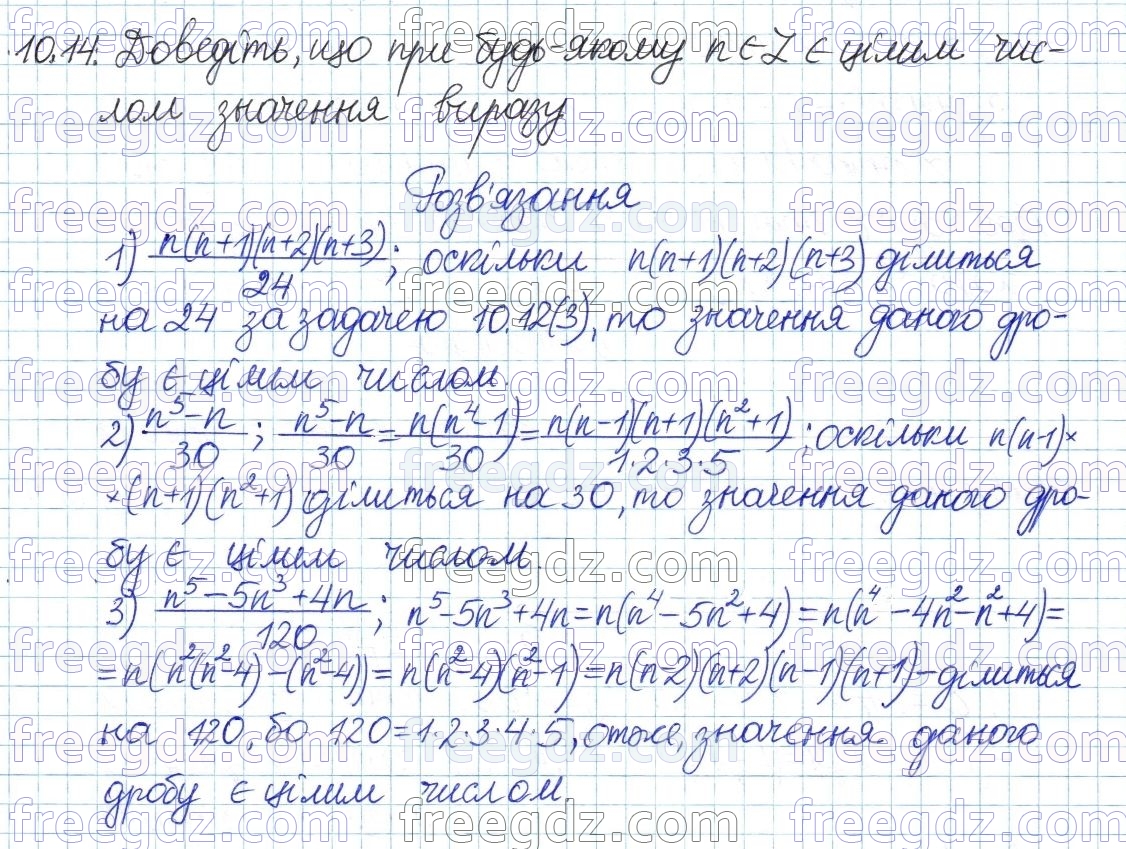 10.14. Доведіть, що при будь-якому n∈Z є цілим чис-
лом значення виразу
Розв'язання
1) n(n+1)(n+2)(n+3)/24; оскільки n(n+1)(n+2)(n+3) ділиться
на 24 за задачею 10.12(3), то значення даного дро-
бу є цілим числом.
2) n⁵-n/30; n⁵-n/30 = n(n⁴-1)/30 = n(n-1)(n+1)(n²+1)/1·2·3·5; оскільки n(n-1)×
×(n+1)(n²+1) ділиться на 30, то значення даного дро-
бу є цілим числом.
3) n⁵-5n³+4n/120; n⁵-5n³+4n=n(n⁴-5n²+4)=n(n⁴-4n²-n²+4)=
=n(n²(n²-4)-(n²-4))=n(n²-4)(n²-1)=n(n-2)(n+2)(n-1)(n+1)-ділиться
на 120, бо 120=1·2·3·4·5, отже, значення даного
дробу є цілим числом.
freegdz.com